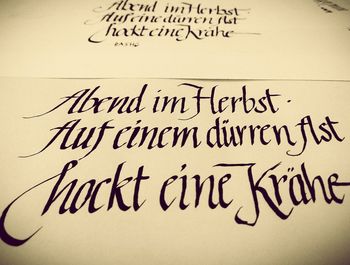 Abend im Herbst.
Auf eine dürren Ast
hockt eine Krähe
BASHO
Abend im Herbst.
Auf einem dürren Ast
hockt eine Krähe